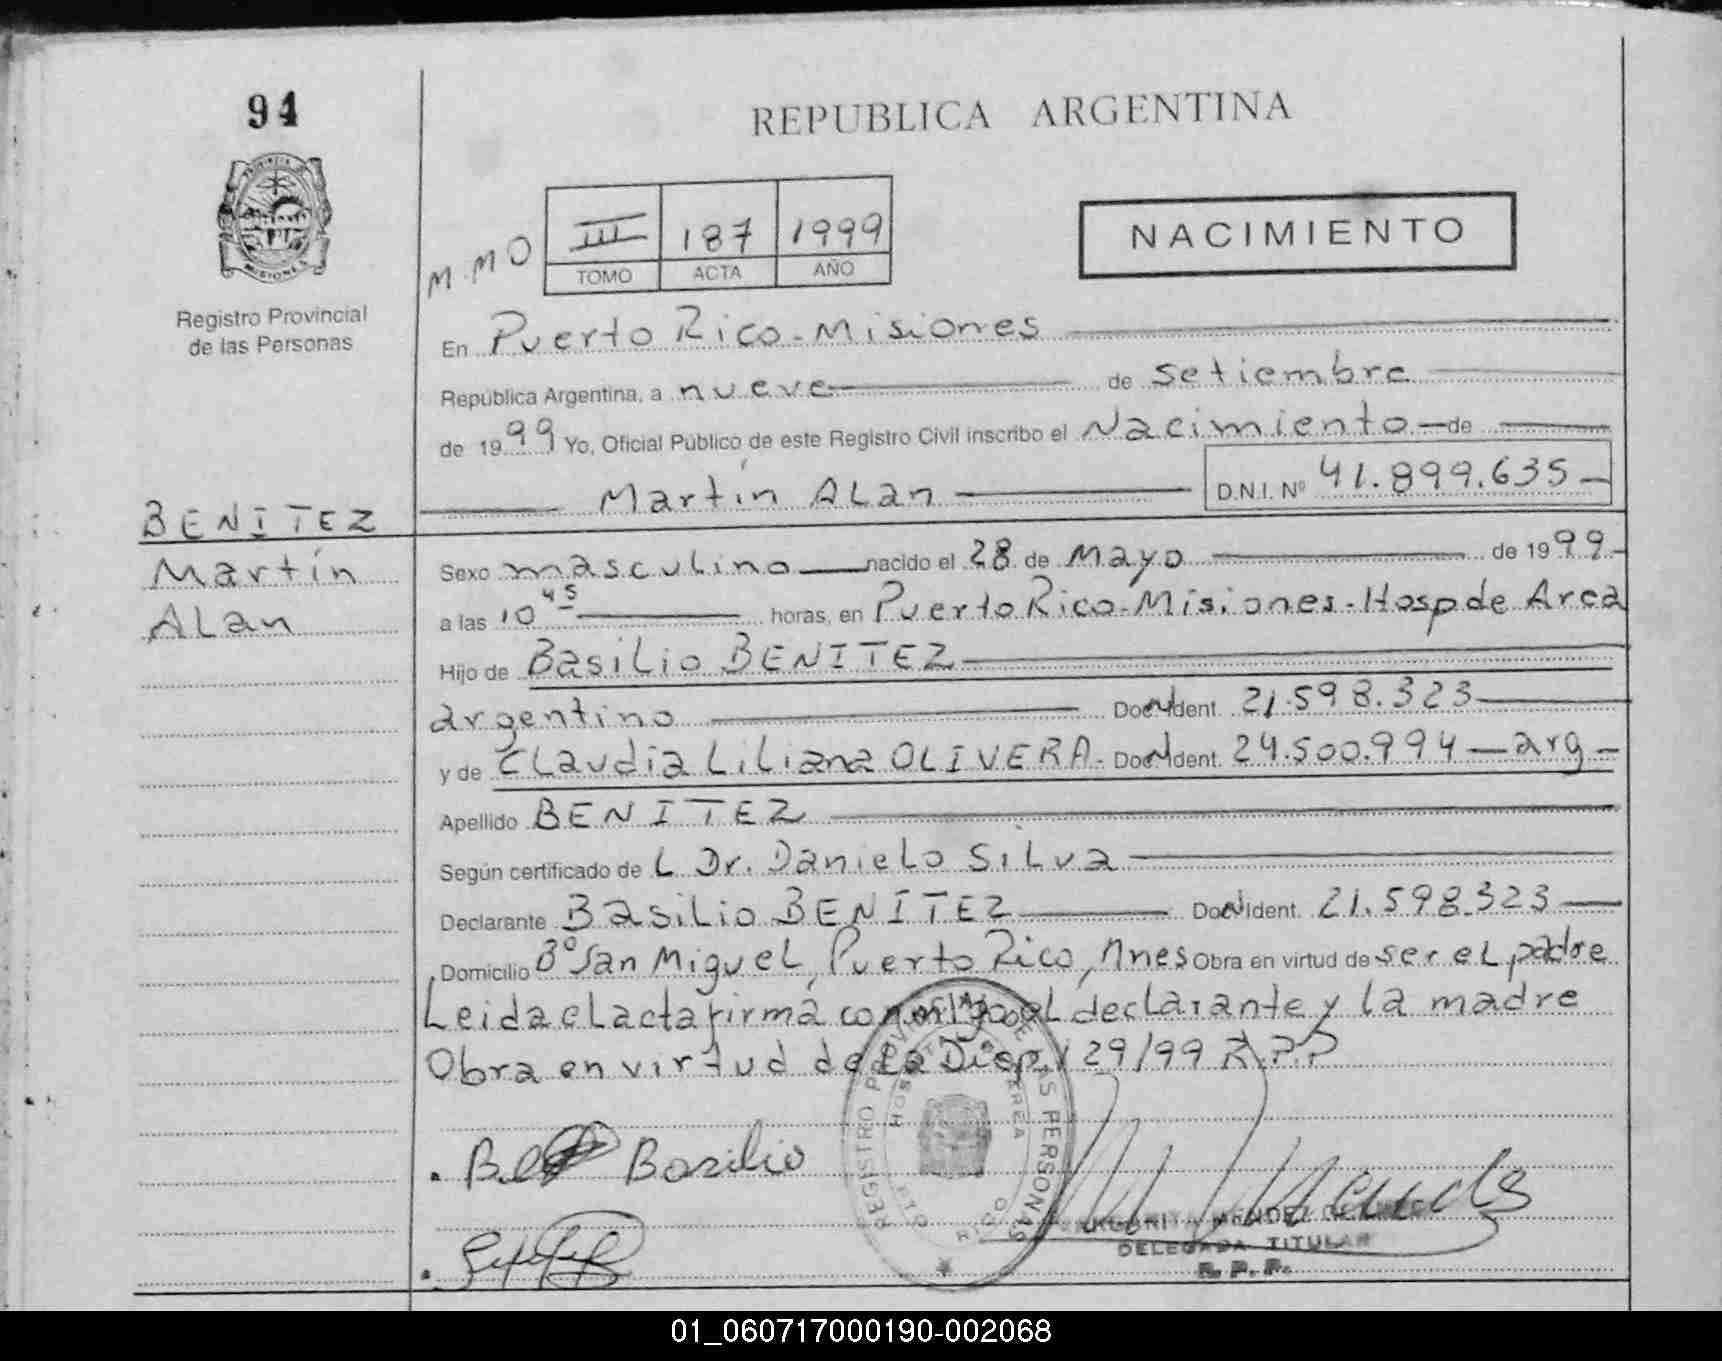 94
REPUBLICA ARGENTINA
PROVINCIA
MISIONES
Registro Provincial
de las Personas
M.MO
III 187 1999
TOMO ACTA AÑO
NACIMIENTO
En Puerto Rico-Misiones
República Argentina, a nueve de setiembre
de 1999 Yo, Oficial Público de este Registro Civil inscribo el Nacimiento de
Martín ALan D.N.I. Nº 41.899.635
BENITEZ
Martín
ALan
Sexo masculino nacido el 28 de Mayo de 1999
a las 10 45 horas, en Puerto Rico-Misiones-Hosp de Area
Hijo de BasiLio BENITEZ
argentino Doc. Ident. 21.598.323
y de CLaudia LiLiana OLIVERA- Doc. Ident. 24.500.994 - arg -
Apellido BENITEZ
Según certificado de L Dr. DanieLo SiLva
Declarante BasiLio BENÍTEZ Doc. Ident. 21.598.323
Domicilio Bº San MigueL, Puerto Rico, Mnes Obra en virtud de ser eL padre
Leida eL acta firma conmigo eL declarante y La madre
Obra en virtud de La Disp 129/99 R.P.P
REGISTRO PROVINCIAL DE LAS PERSONAS
HOSPITAL AREA
PTO RICO
Basilio
DELEGADA TITULAR
R.P.P.
01_060717000190-002068